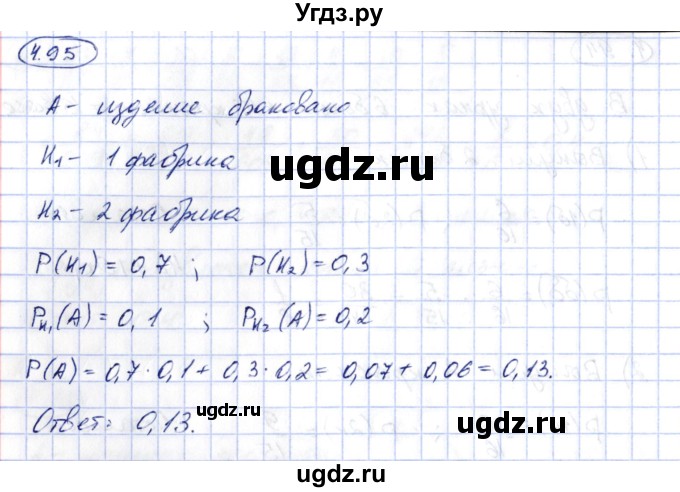 Угдз.ру
4.95
А – изделие браковано
H₁ – 1 фабрика
ugdz.ru
H₂ – 2 фабрика
P(H₁) = 0,7 ; P(H₂) = 0,3
P_H₁(A) = 0,1 ; P_H₂(A) = 0,2
P(A) = 0,7 · 0,1 + 0,3 · 0,2 = 0,07 + 0,06 = 0,13.
ugdz.ru
Ответ: 0,13.
ugdz.ru
ugdz.ru